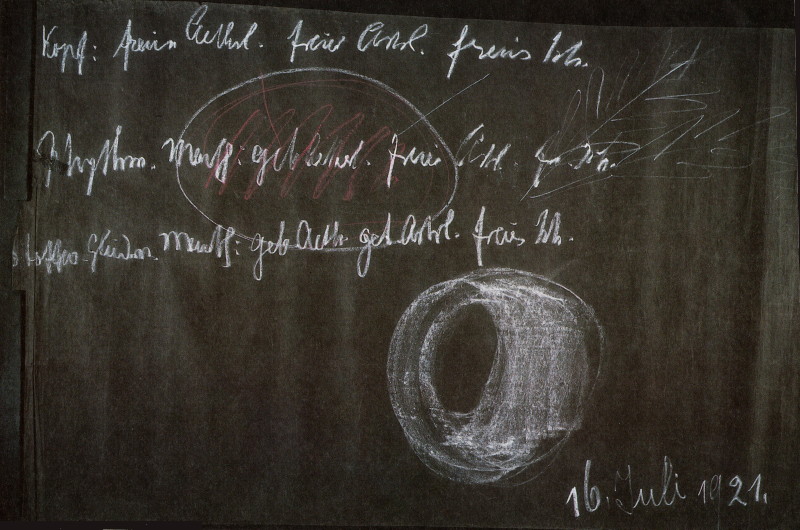 Kopf: freier Aethl. freier Astrl. freies Ich.
Rhythm. Mensch: geb Aethl. freier Astrl. f Ich.
Stoffw. Gliedm. Mensch: geb Aeth. geb Astrl. freies Ich.
16. Juli 1921.